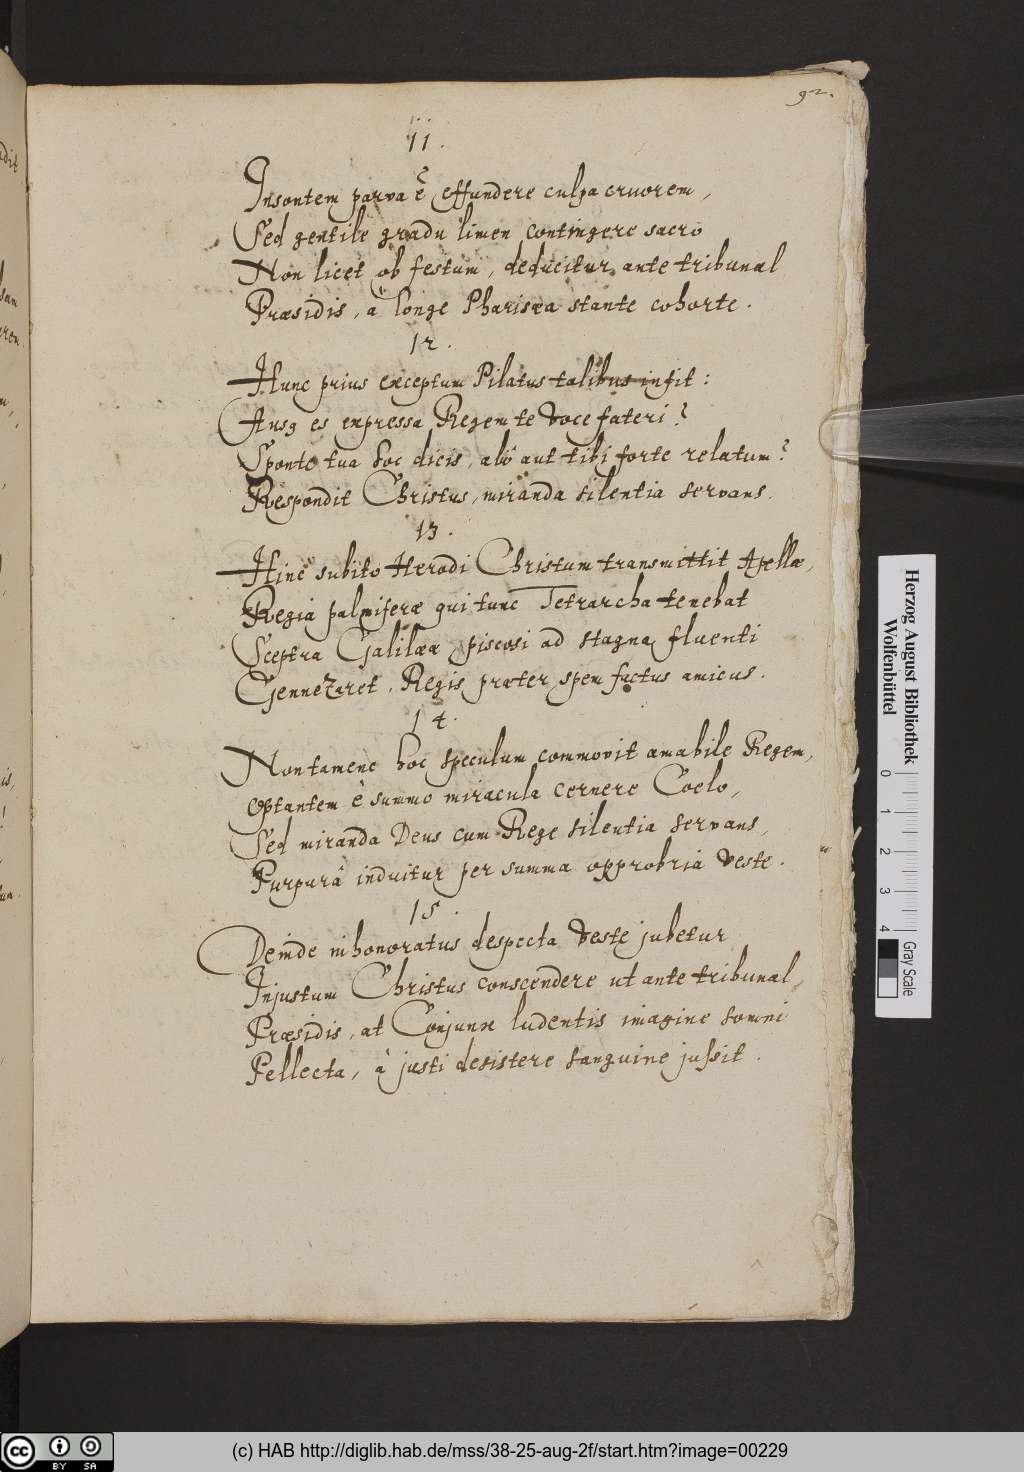 92.
11.
Insontem parva ẽ effundere culpa cruorem,
Sed gentile gradu limen contingere sacro
Non licet ob festum, deducitur ante tribunal
Præsidis, à longe Pharisæa stante cohorte.
12.
Hunc prius exceptum Pilatus talibus infit:
Ausq es expressa Regem te voce fateri?
Sponte tua hoc dicis, abs aut tibi forte relatum?
Respondit Christus, miranda silentia servans.
13.
Hinc subito Herodi Christum transmittit Apellæ,
Regia palmiferæ qui tunc Tetrarcha tenebat
Sceptra Galilææ piscosi ad stagna fluenti
Gennezaret, Regis præter spem factus amicus.
14.
Non tamene hoc speculum commovit amabile Regem,
Optantem è summo miracula cernere Coelo,
Sed miranda Deus cum Rege silentia servans,
Purpurâ induitur per summa opprobria veste.
15.
Deinde inhonoratus despecta veste jubetur
Injustum Christus conscendere ut ante tribunal,
Præsidis, at Conjunx ludentis imagine somni
Pellecta, à justi desistere sanguine jussit.
Herzog August Bibliothek
Wolfenbüttel
0 1 2 3 4
Gray Scale
cc BY SA
(c) HAB http://diglib.hab.de/mss/38-25-aug-2f/start.htm?image=00229